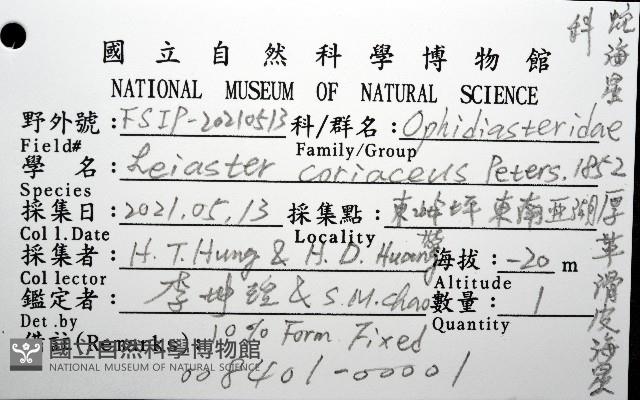 國立自然科學博物館
NATIONAL MUSEUM OF NATURAL SCIENCE
野外號:FSIP-20210513 科/群名:Ophidiasteridae
Field# Family/Group
學 名:Leiaster coriaceus Peters, 1852
Species
採集日:2021.05.13 採集點:東沙 坪 東南亞湖
Coll.Date Locality
採集者:H.T.Hung & H.D.Huang 海拔:-20 m
Collector Altitude
鑑定者:李坤瑄 & S.M.Chao 數量:1
Det.by Quantity
備註(Remarks): 10% Form Fixed
008401-00001
蛇海星科
厚革滑皮海星
國立自然科學博物館
NATIONAL MUSEUM OF NATURAL SCIENCE